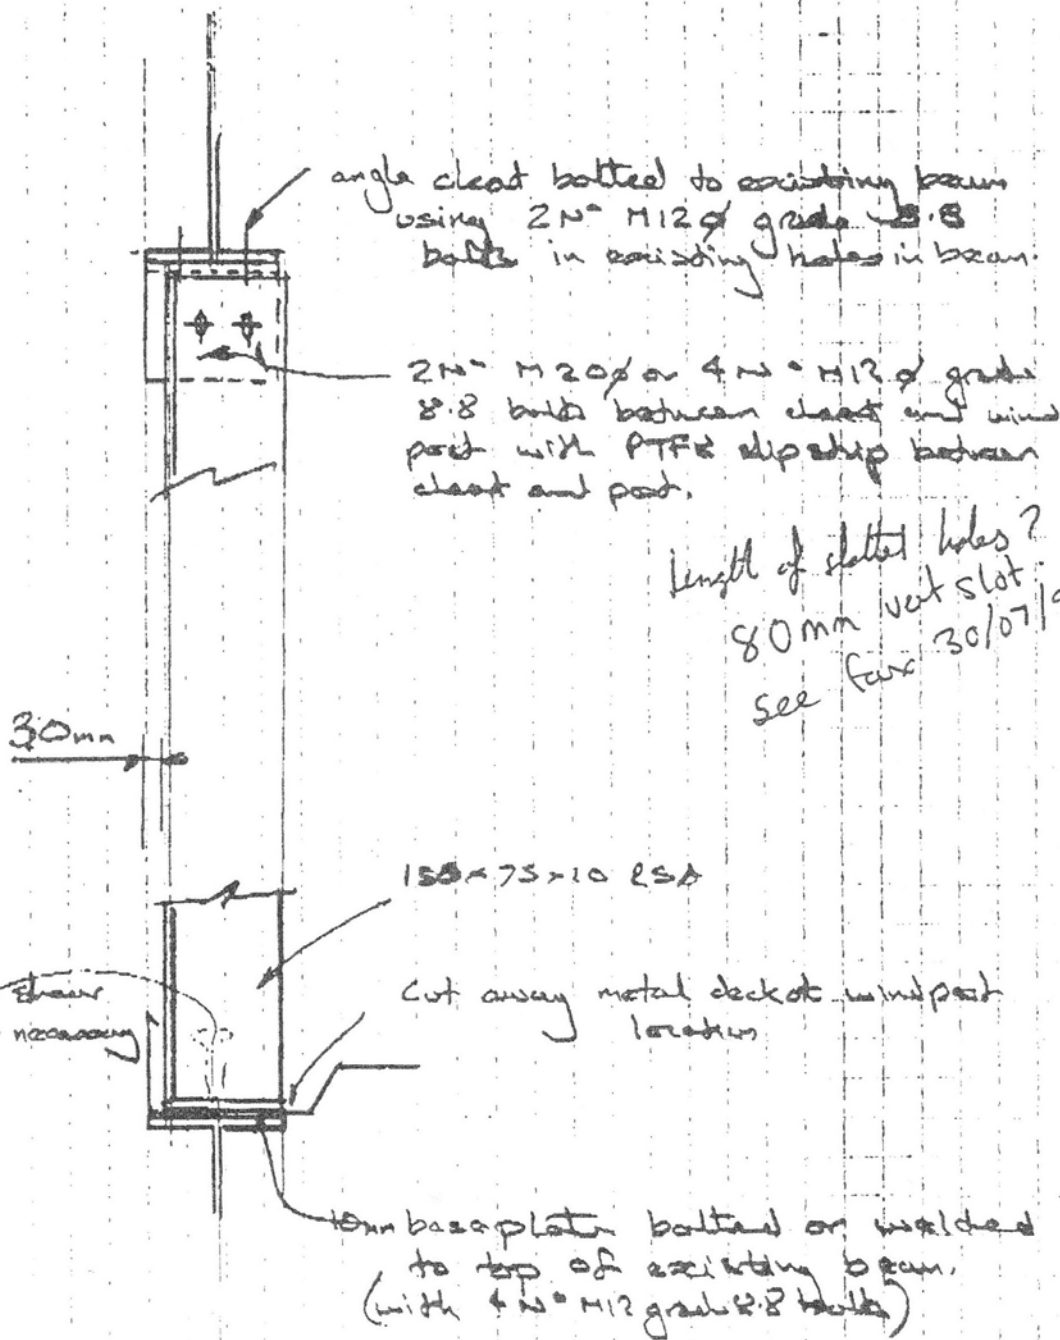 angle cleat bolted to existing beam
using 2N° M12ø grade 8.8
bolts in existing holes in beam.
2N° M20ø or 4N° M12ø grade
8.8 bolts between cleat and wind
post with PTFE slip strip between
cleat and post.
Length of slotted holes?
80mm vert slot
see fax 30/07/9
30mm
150×75×10 RSA
shear
necessary
Cut away metal deck at windpost
location
10mm baseplate bolted or welded
to top of existing beam.
(with 4N° M12 grade 8.8 bolts)